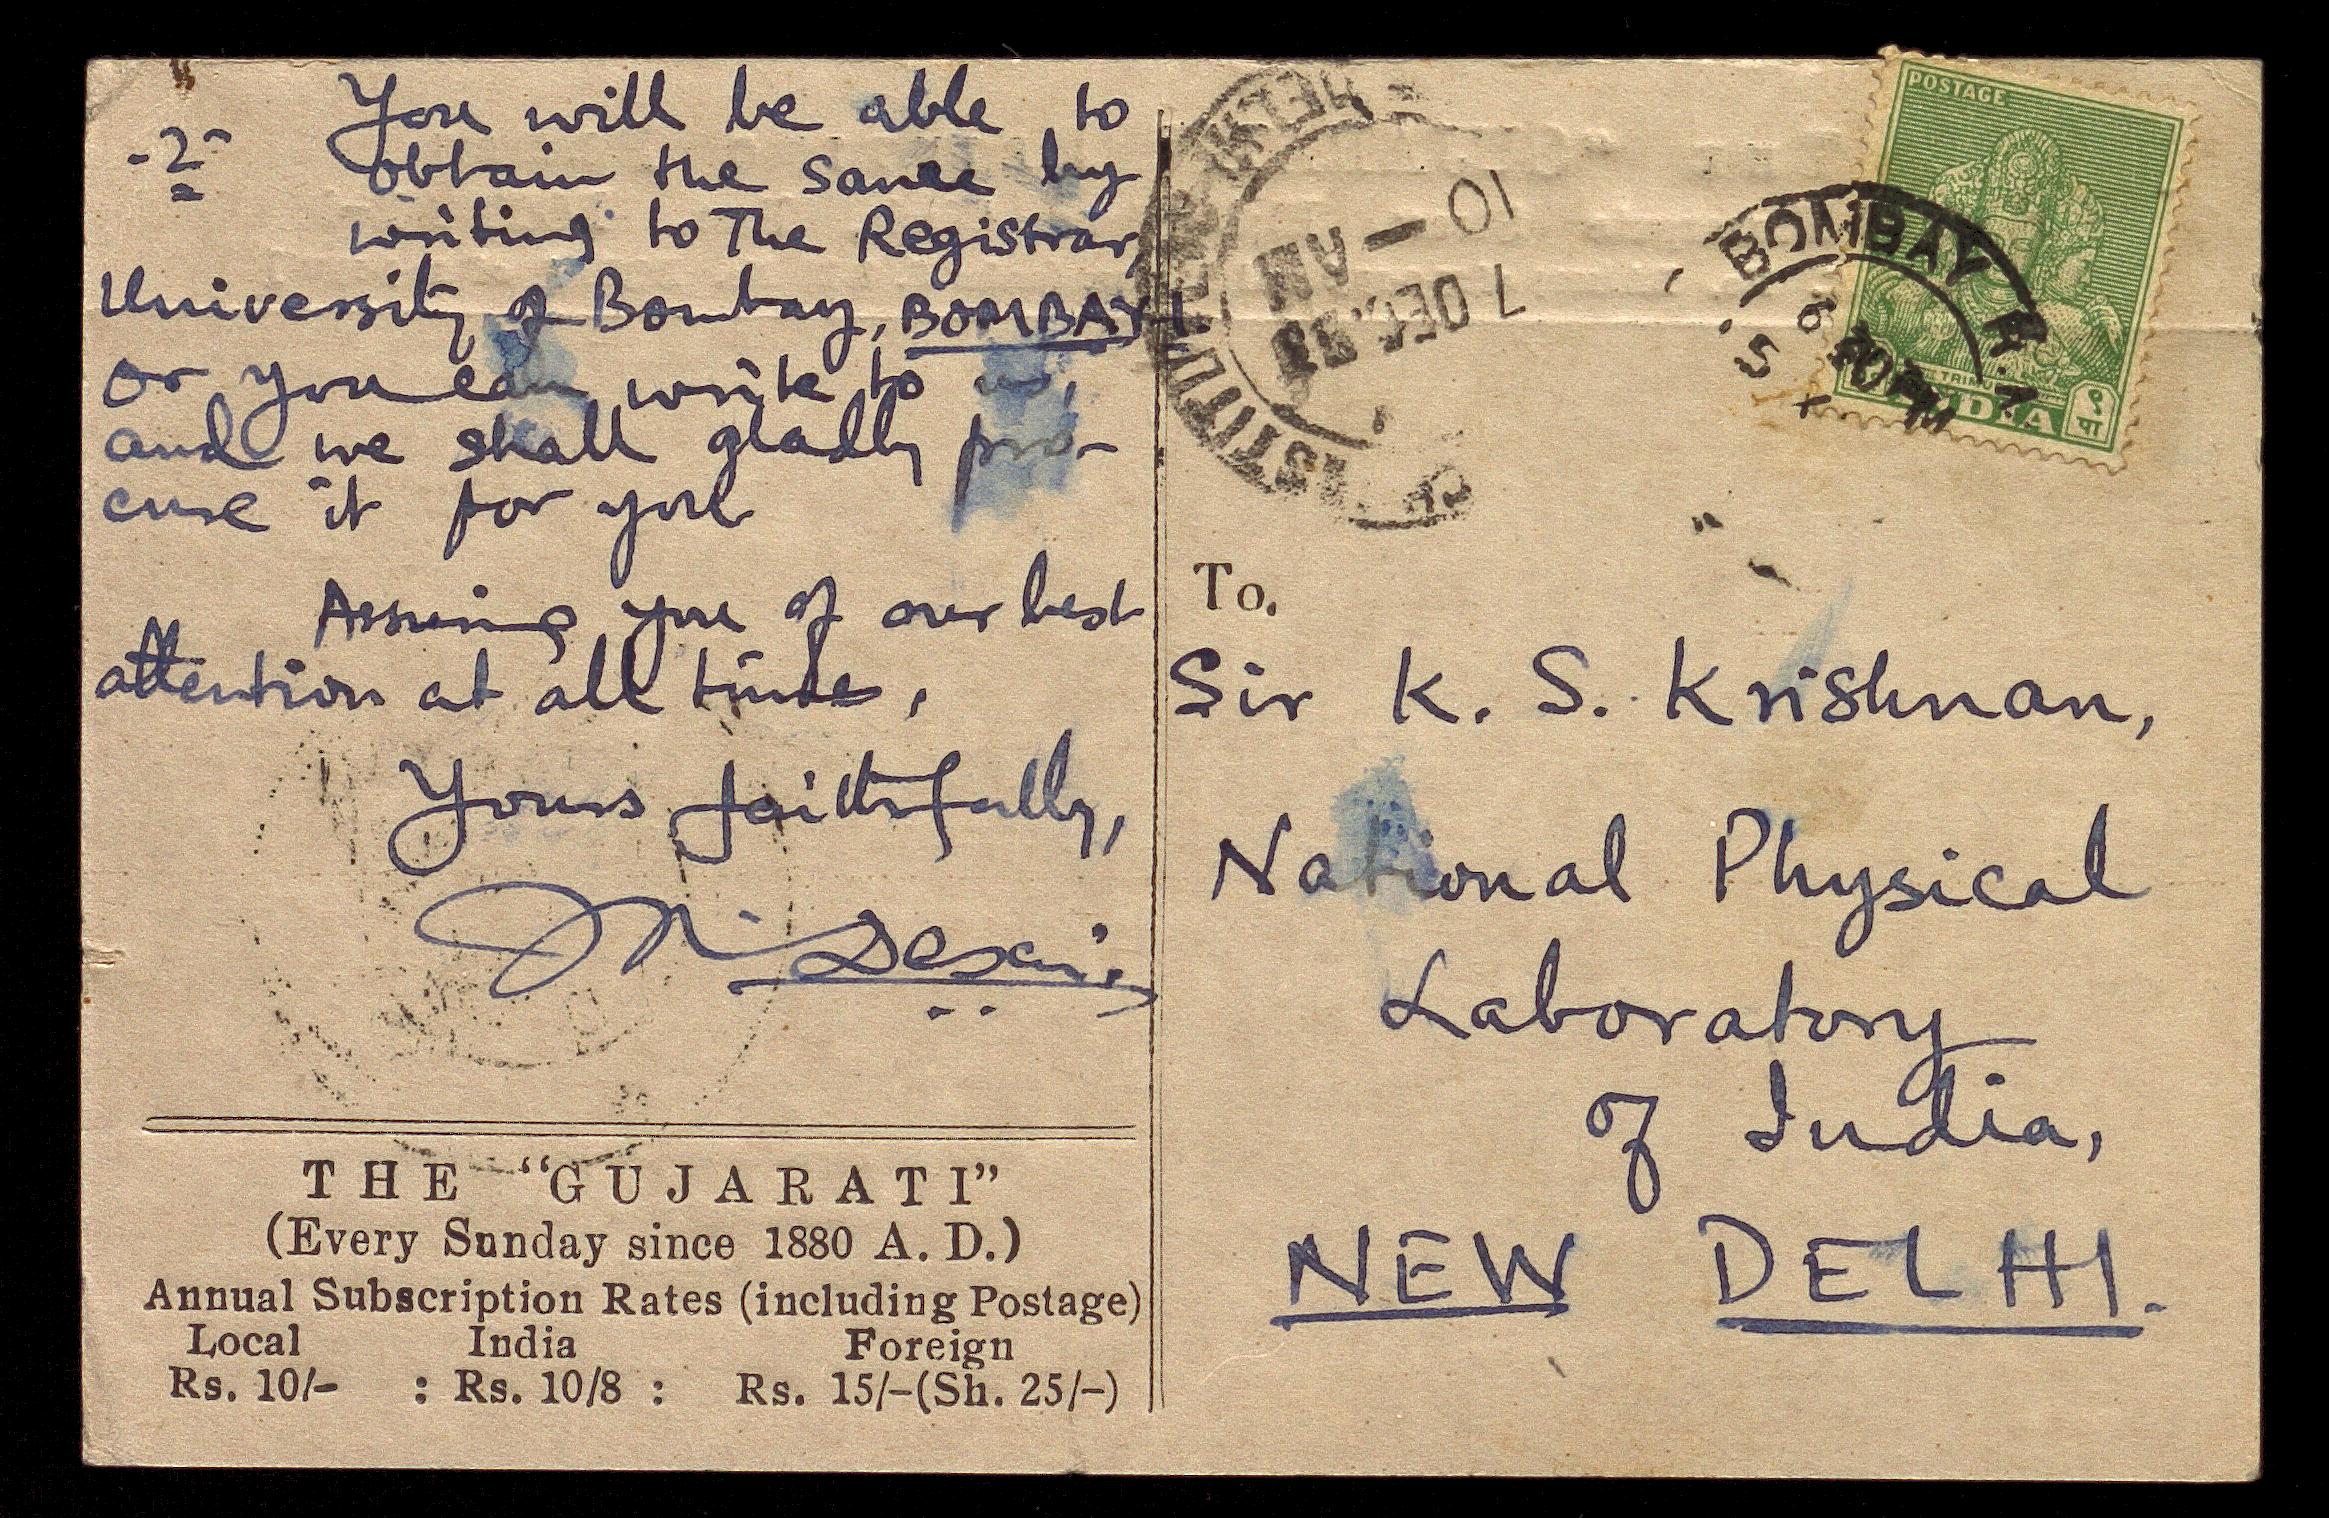 -2-
You will be able to
obtain the same by
writing to The Registrar,
University of Bombay, BOMBAY 1.
or you can write to us,
and we shall gladly pro-
cure it for you
Assuring you of our best
attention at all time,
Yours faithfully,
Desai
THE "GUJARATI"
(Every Sunday since 1880 A. D.)
Annual Subscription Rates (including Postage)
Local India Foreign
Rs. 10/- : Rs. 10/8 : Rs. 15/-(Sh. 25/-)
10 — AM
7 DEC.
POSTAGE
BOMBAY
INDIA
९ पा
To,
Sir K. S. Krishnan,
National Physical
Laboratory
of India,
NEW DELHI.